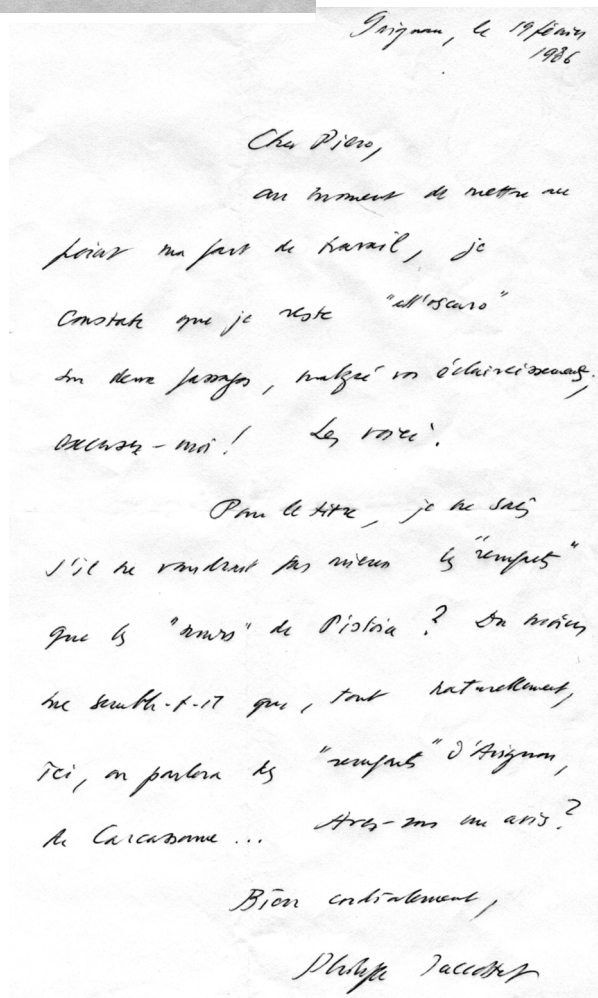 Grignan, le 19 février
1986
Cher Piero,
au moment de mettre au
point ma part de travail, je
constate que je reste "all'oscuro"
sur deux passages, malgré vos éclaircissements;
excusez-moi! Les voici.
Pour le titre, je ne sais
s'il ne vaudrait pas mieux les "remparts"
que les "murs" de Pistoia? Du moins
me semble-t-il que, tout naturellement,
ici, on parlera des "remparts" d'Avignon,
de Carcassonne... Avez-vous un avis?
Bien cordialement,
Philippe Jaccottet